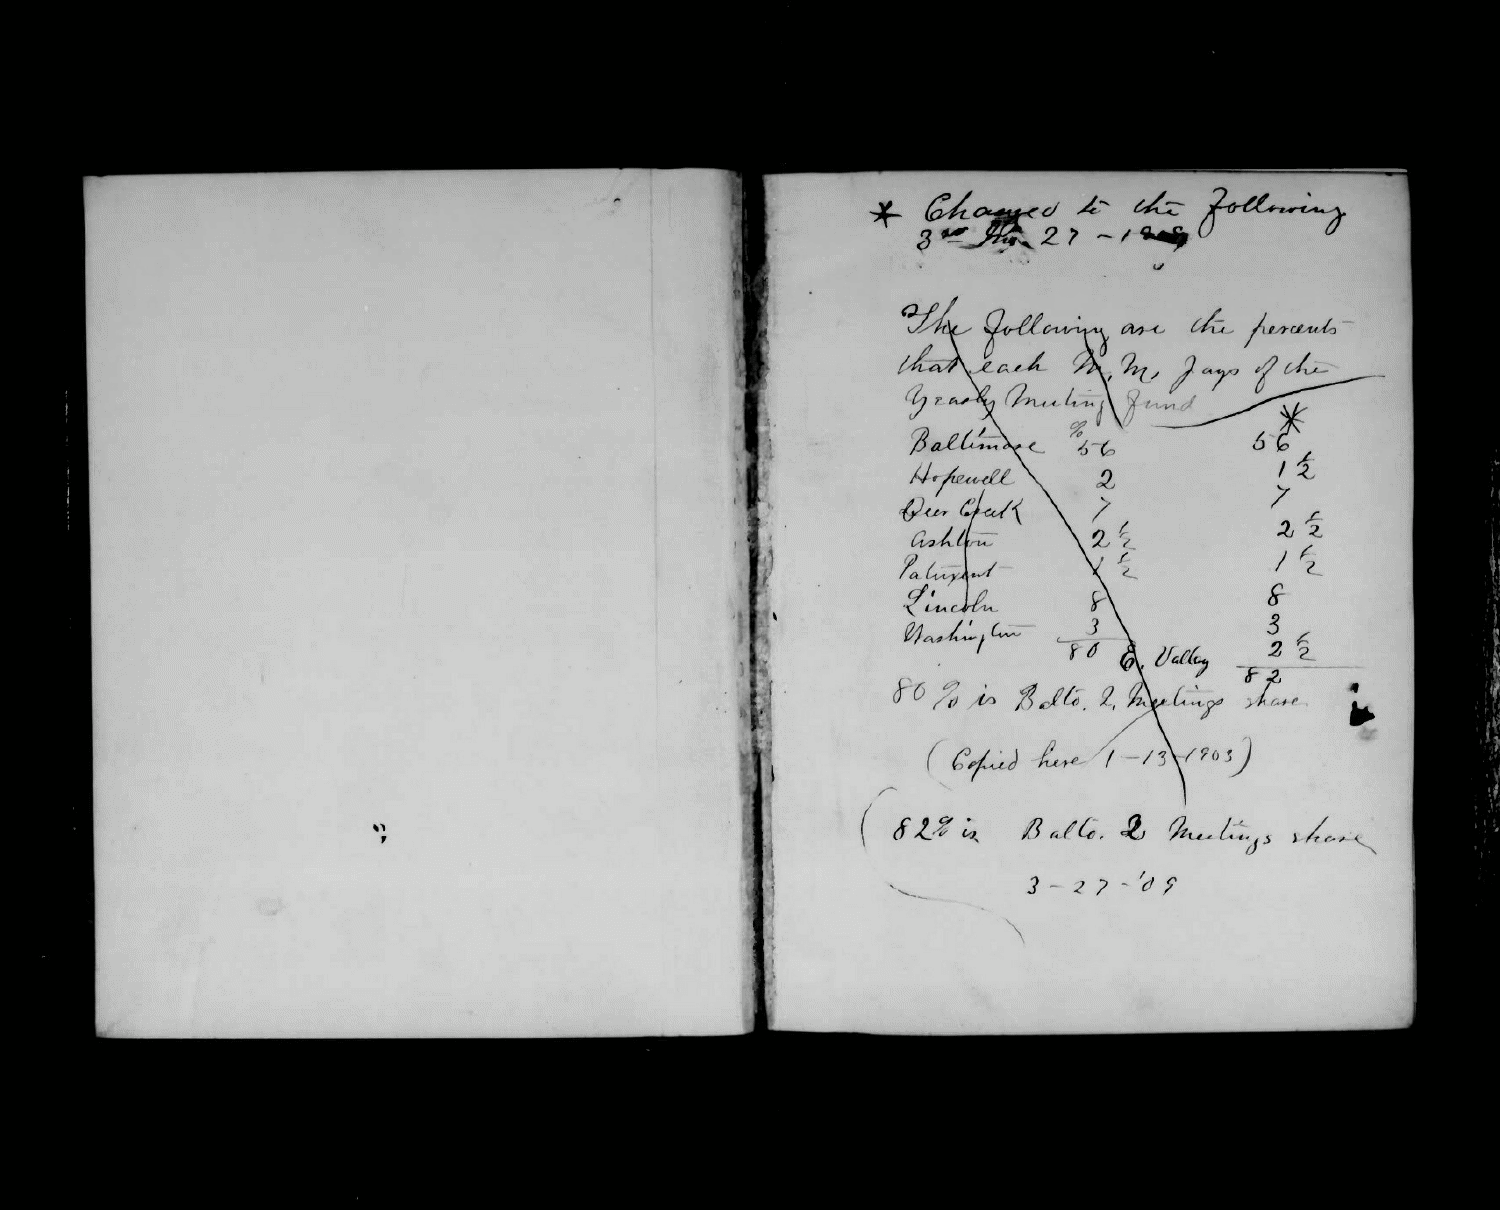 * Changed to the following
3rd Mo. 27 - 1909
The following are the percents
that each M. M. pays of the
Yearly Meeting fund
*
Baltimore % 56 56
Hopewell 2 1 1/2
Deer Creek 7 7
Ashton 2 1/2 2 1/2
Patuxent 1 1/2 1 1/2
Lincoln 8 8
Washington 3 3
80 E. Valley 2 1/2
82
80 % is Balto. 2. Meetings share
(Copied here 1-13-1903)
(82% is Balto. 2 Meetings share
3-27-'09